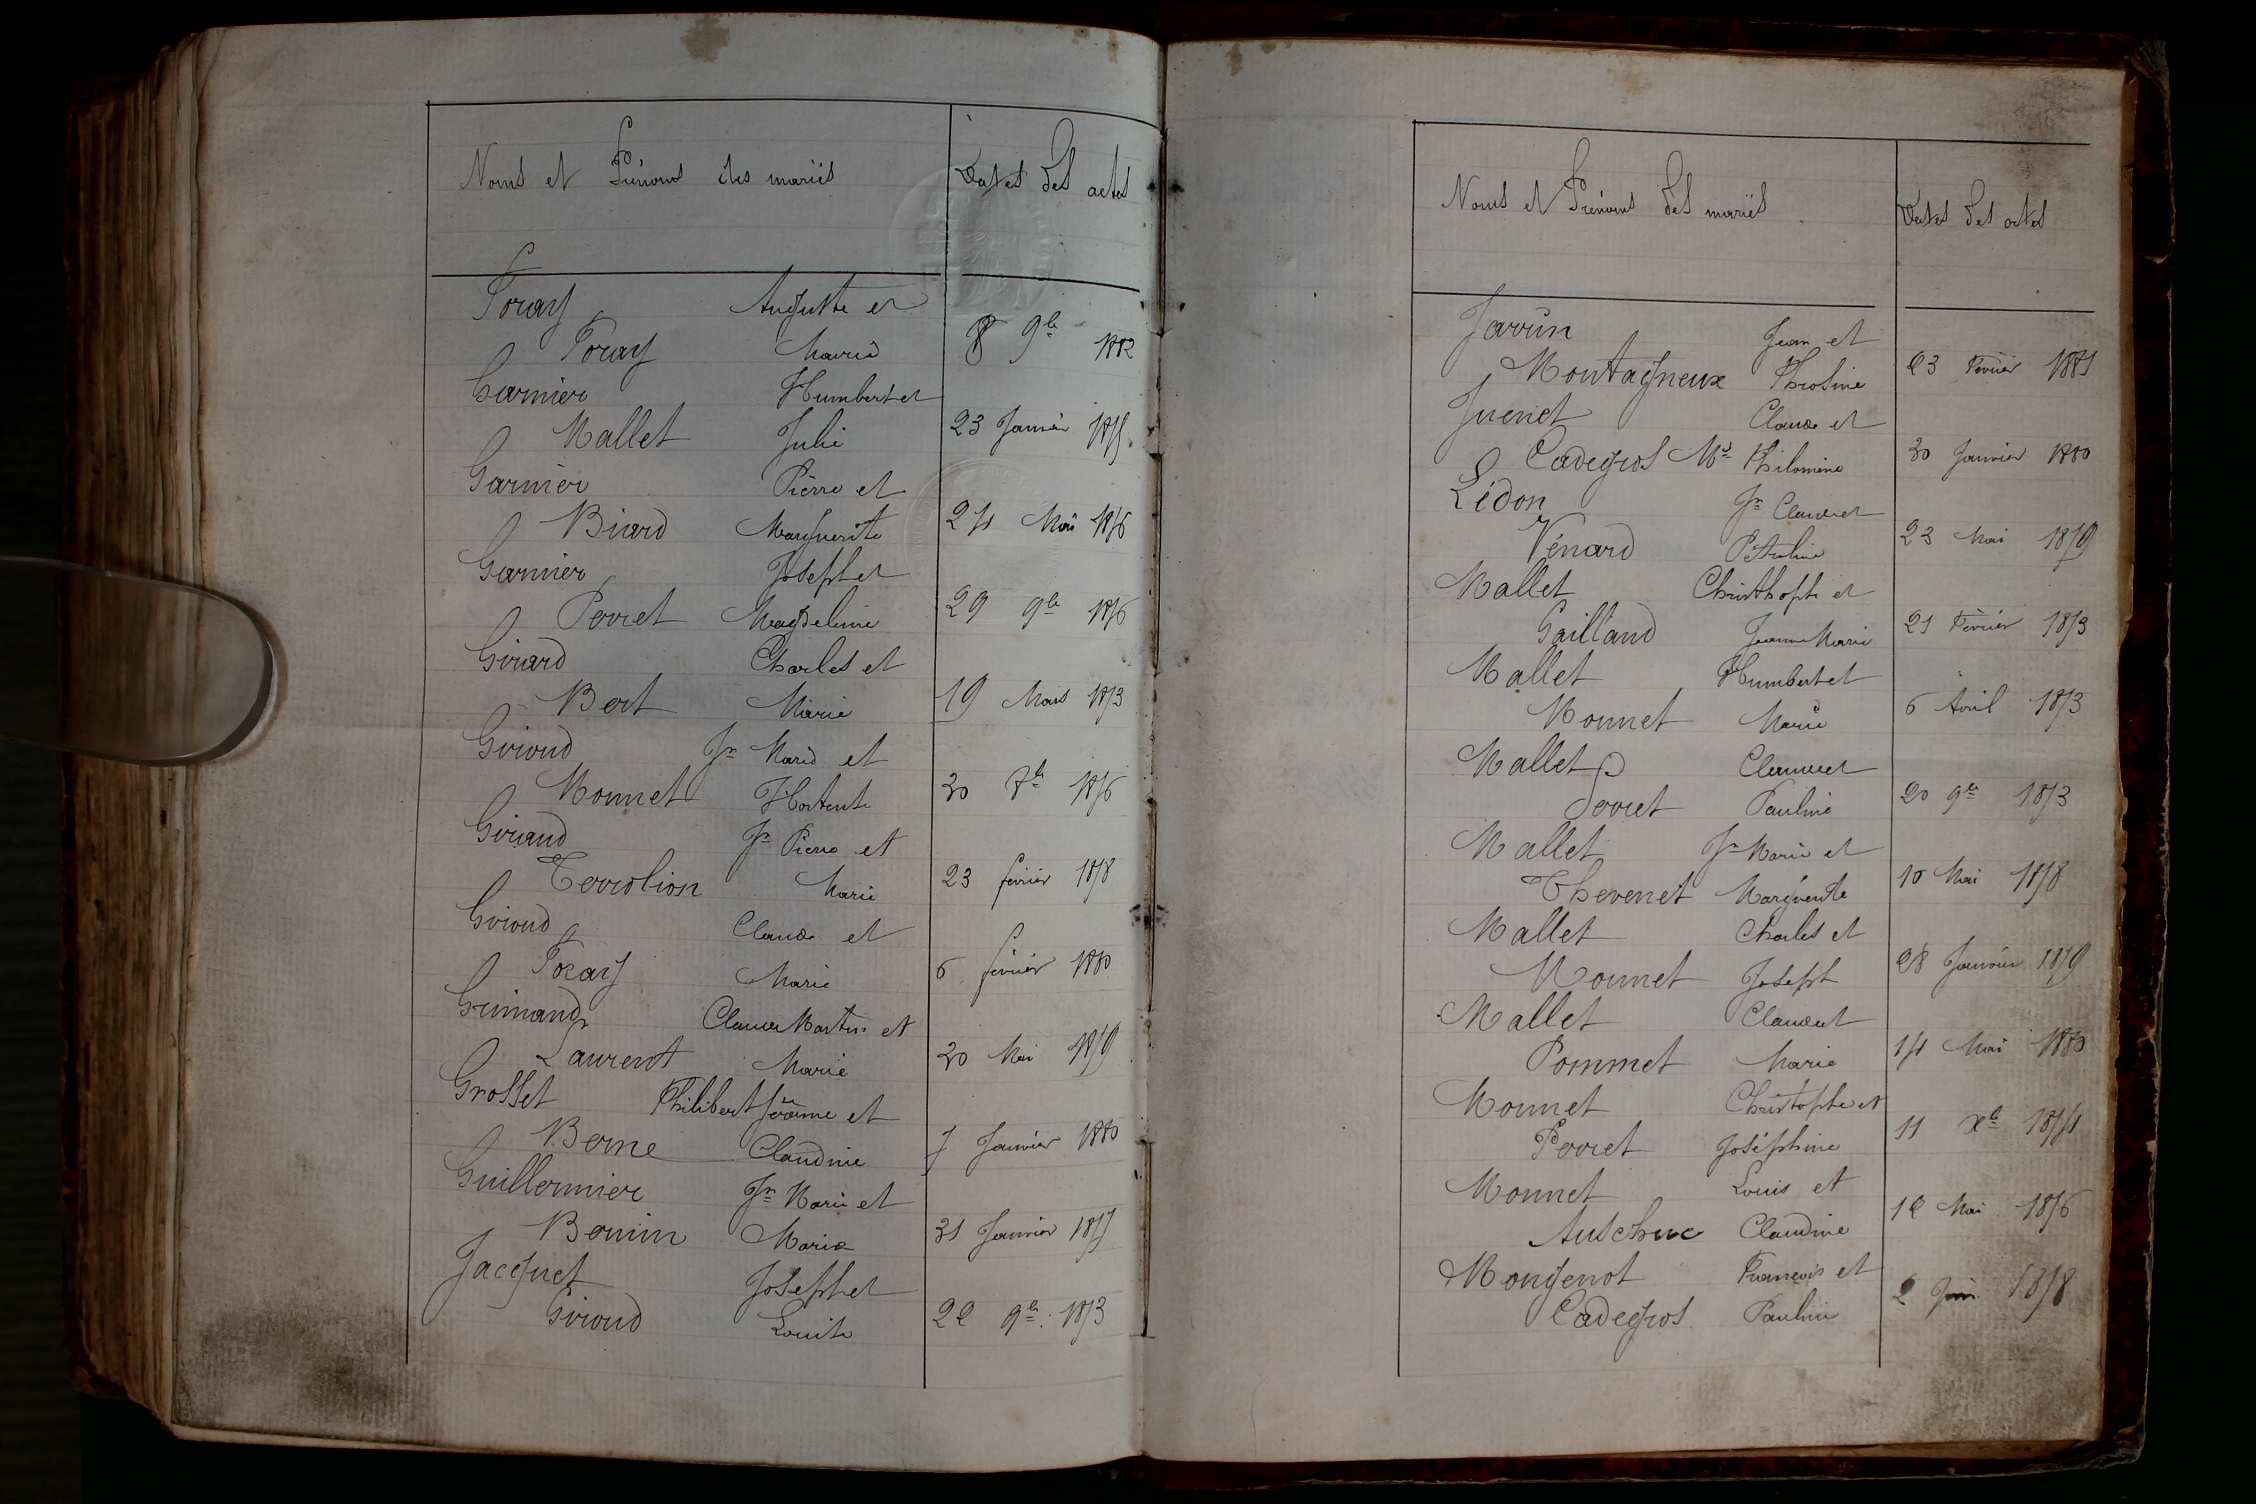 Noms et Prénoms des mariés Dates des actes
Foray Auguste et
Foray Maria 8 9bre 1882
Garnier Humbert et
Mallet Julie 23 Janvier 1875
Garnier Pierre et
Biard Marguerite 24 Mai 1876
Garnier Joseph et
Perret Magdeleine 29 9bre 1876
Girard Charles et
Bert Marie 19 Mars 1873
Giroud Jn Marie et
Monnet Hortense 30 7bre 1876
Giraud Jn Pierre et
Terrolion Marie 23 février 1878
Giroud Claude et
Foray Marie 6 février 1880
Grimand Claude Martin et
Laurent Marie 30 Mai 1879
Grosset Philibert Jérôme et
Berne Claudine 7 Janvier 1880
Guillermier Jn Marie et
Bonin Marie 31 Janvier 1877
Jacquet Joseph et
Giroud Louise 22 9bre 1873
Noms et Prénoms des mariés Dates des actes
Javrin Jean et
Montagneux Phrosine 23 Février 1881
Juenet Claude et
Cadegros Mie Philomène 30 Janvier 1880
Lédon Jn Claude et
Vénard 23 Mai 1879
Mallet Christhophe et
Gailland Jeanne Marie 21 Février 1873
Mallet Humbert et
Monnet Marie 6 Avril 1873
Mallet Claude et
Perret Pauline 20 9bre 1873
Mallet Jn Marie et
Thevenet Marguerite 10 Mai 1878
Mallet Charles et
Monnet Joseph 28 Janvier 1879
Mallet Claude et
Pommet Marie 14 Mai 1880
Monnet Christophe et
Perret Joséphine 11 Xbre 1874
Monnet Louis et
Claudine 12 Mai 1876
Mongenot François et
Cadegros Pauline 2 Juin 1878